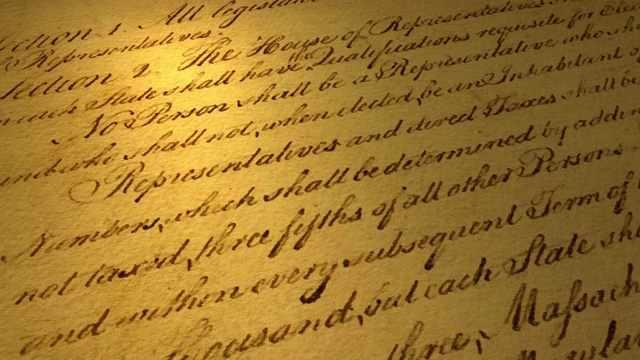 Section 1. All legislat
Representatives.
Section 2. The House of Representatives
each State shall have the Qualifications requisite for Elec
No Person shall be a Representative who sha
and who shall not, when elected, be an Inhabitant of
Representatives and direct Taxes shall be
Numbers, which shall be determined by addin
not taxed, three fifths of all other Persons.
and within every subsequent Term of
thousand, but each State sha
three, Massach